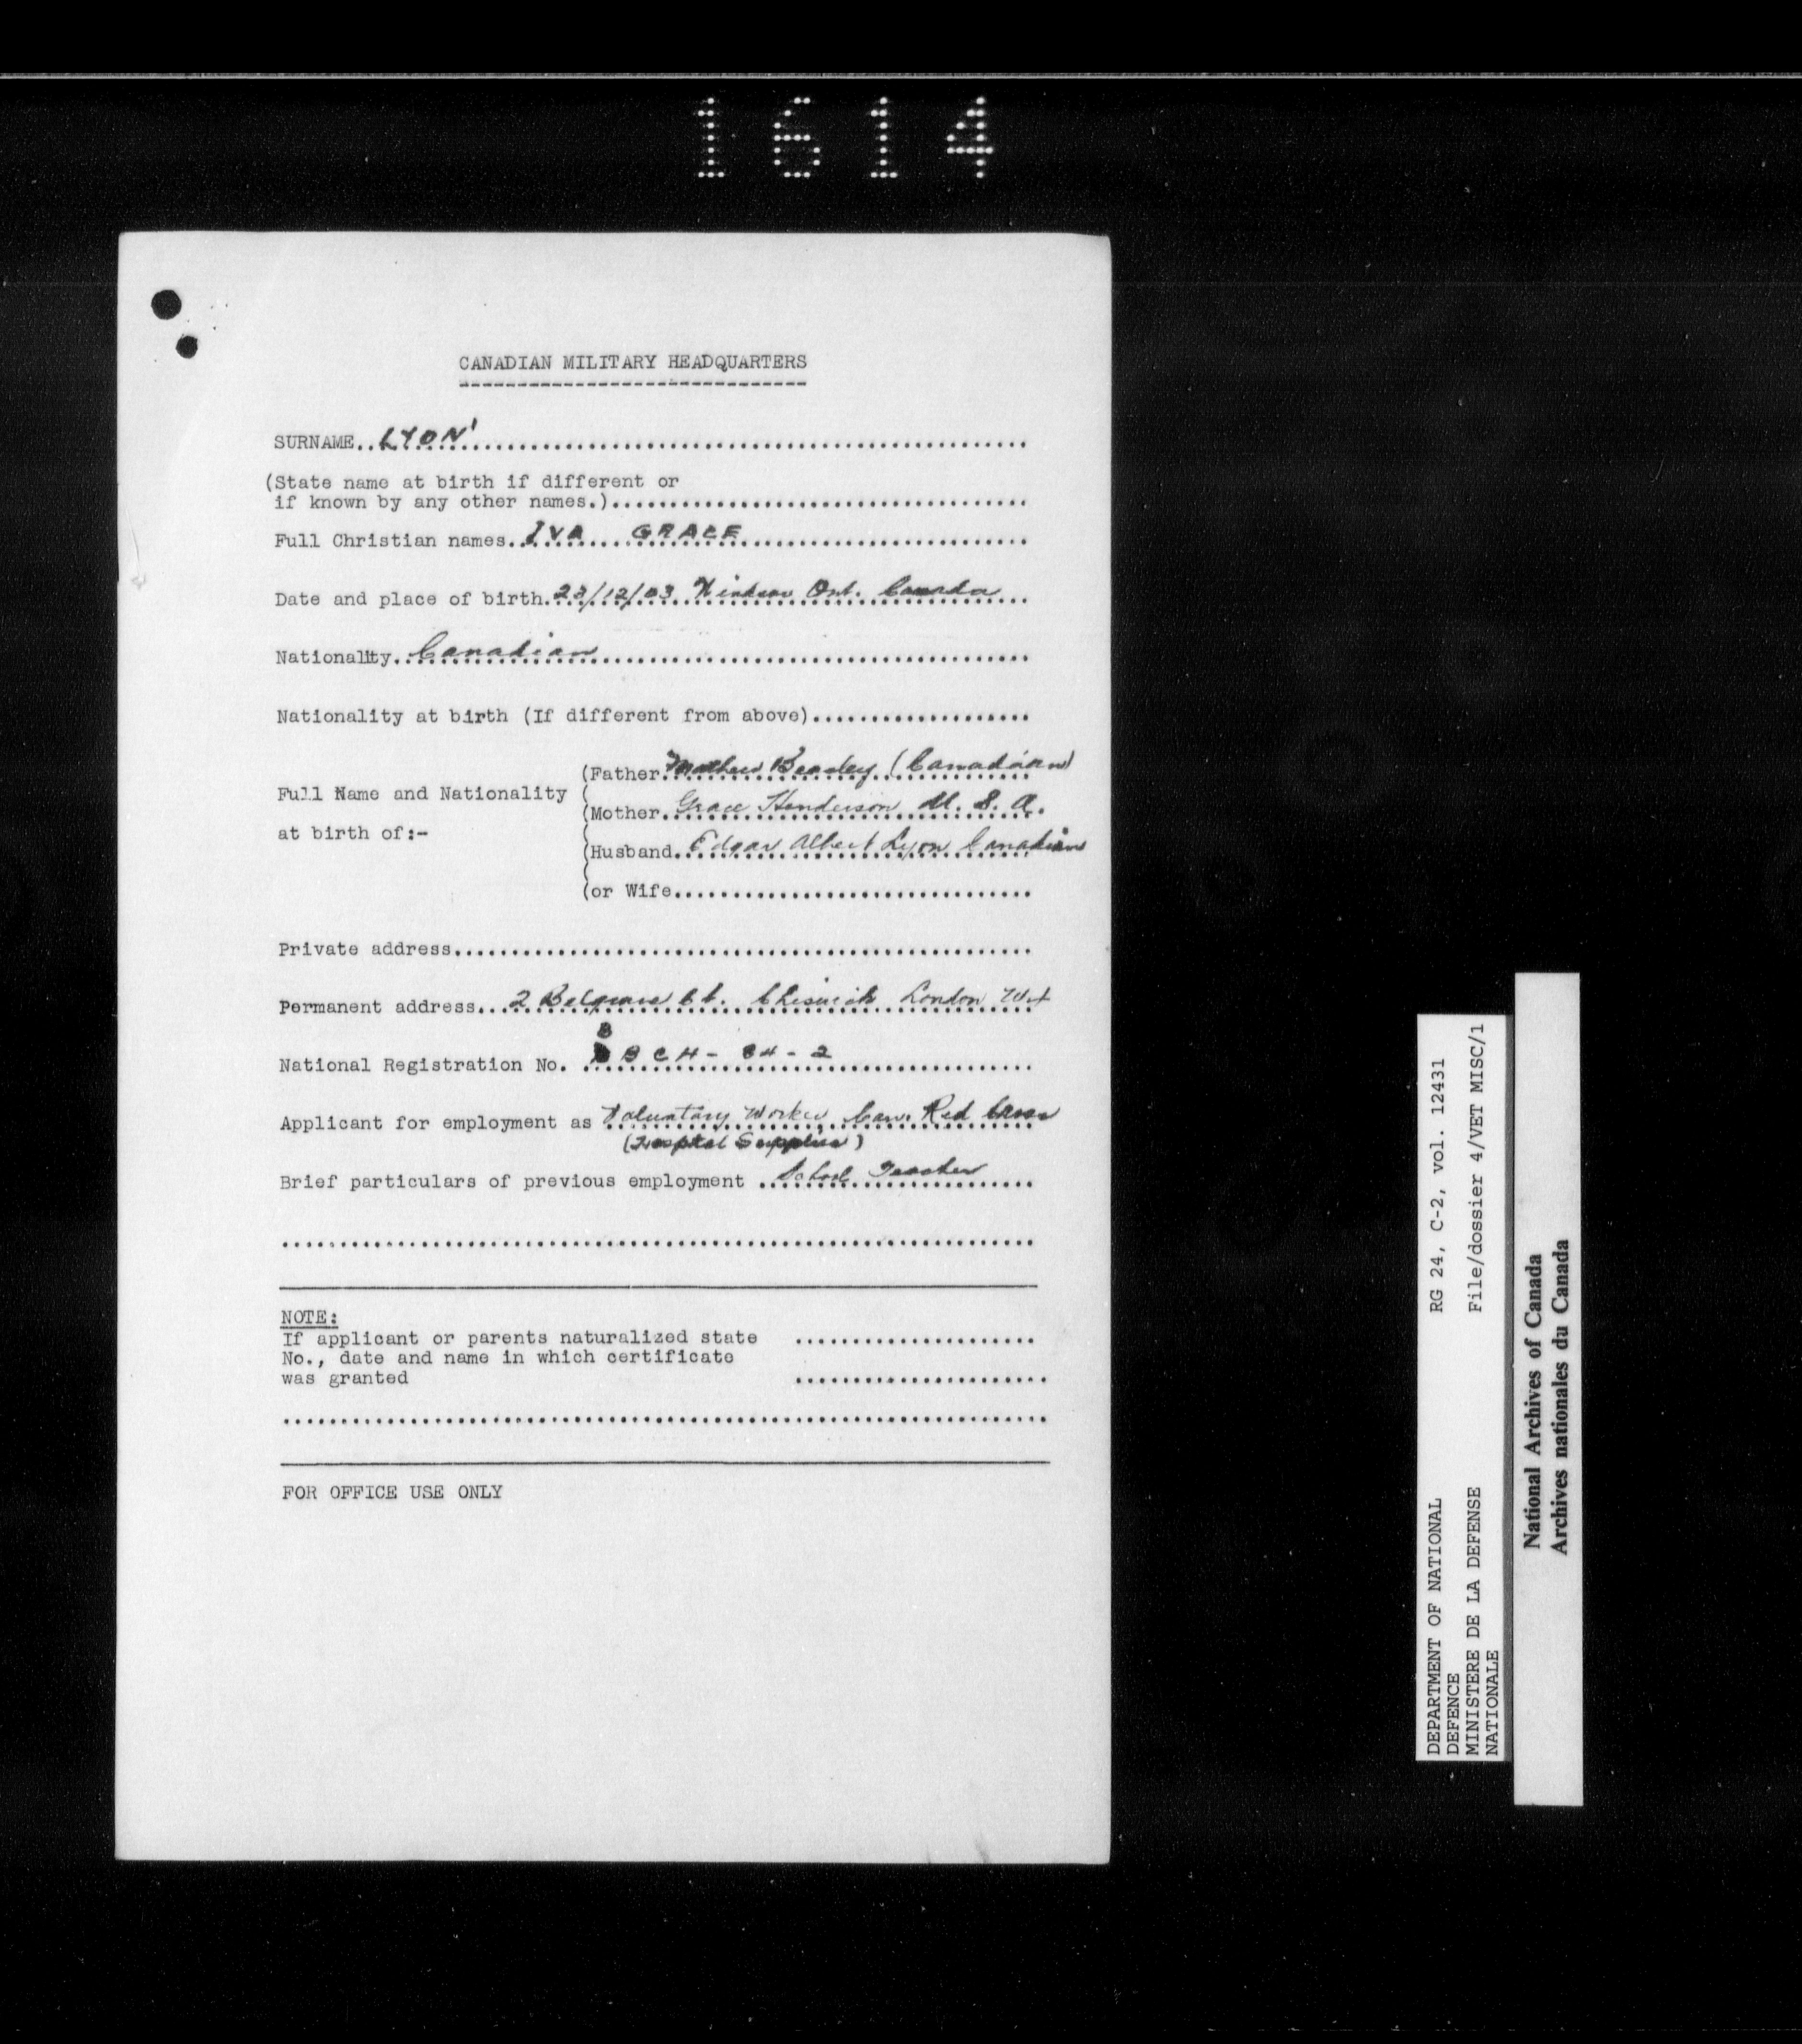 1614
CANADIAN MILITARY HEADQUARTERS
SURNAME..LYON
(State name at birth if different or
if known by any other names.)
Full Christian names..IVA GRACE
Date and place of birth.23/12/03 Windsor Ont. Canada
Nationality..Canadian
Nationality at birth (If different from above)
Full Name and Nationality
at birth of:-
(Father. Mathew Beasley (Canadian)
(Mother. Grace Henderson U. S. A.
(Husband. Edgar Albert Lyon Canadian
(or Wife
Private address
Permanent address...2 Belgrave Ct. Chiswick London W4
National Registration No. B B C H - 84 - 2
Applicant for employment as Voluntary Worker, Can. Red Cross
(Hospital Supplies)
Brief particulars of previous employment ..School Teacher
NOTE:
If applicant or parents naturalized state
No., date and name in which certificate
was granted
FOR OFFICE USE ONLY
DEPARTMENT OF NATIONAL
DEFENCE
MINISTERE DE LA DEFENSE
NATIONALE
RG 24, C-2, vol. 12431
File/dossier 4/VET MISC/1
National Archives of Canada
Archives nationales du Canada